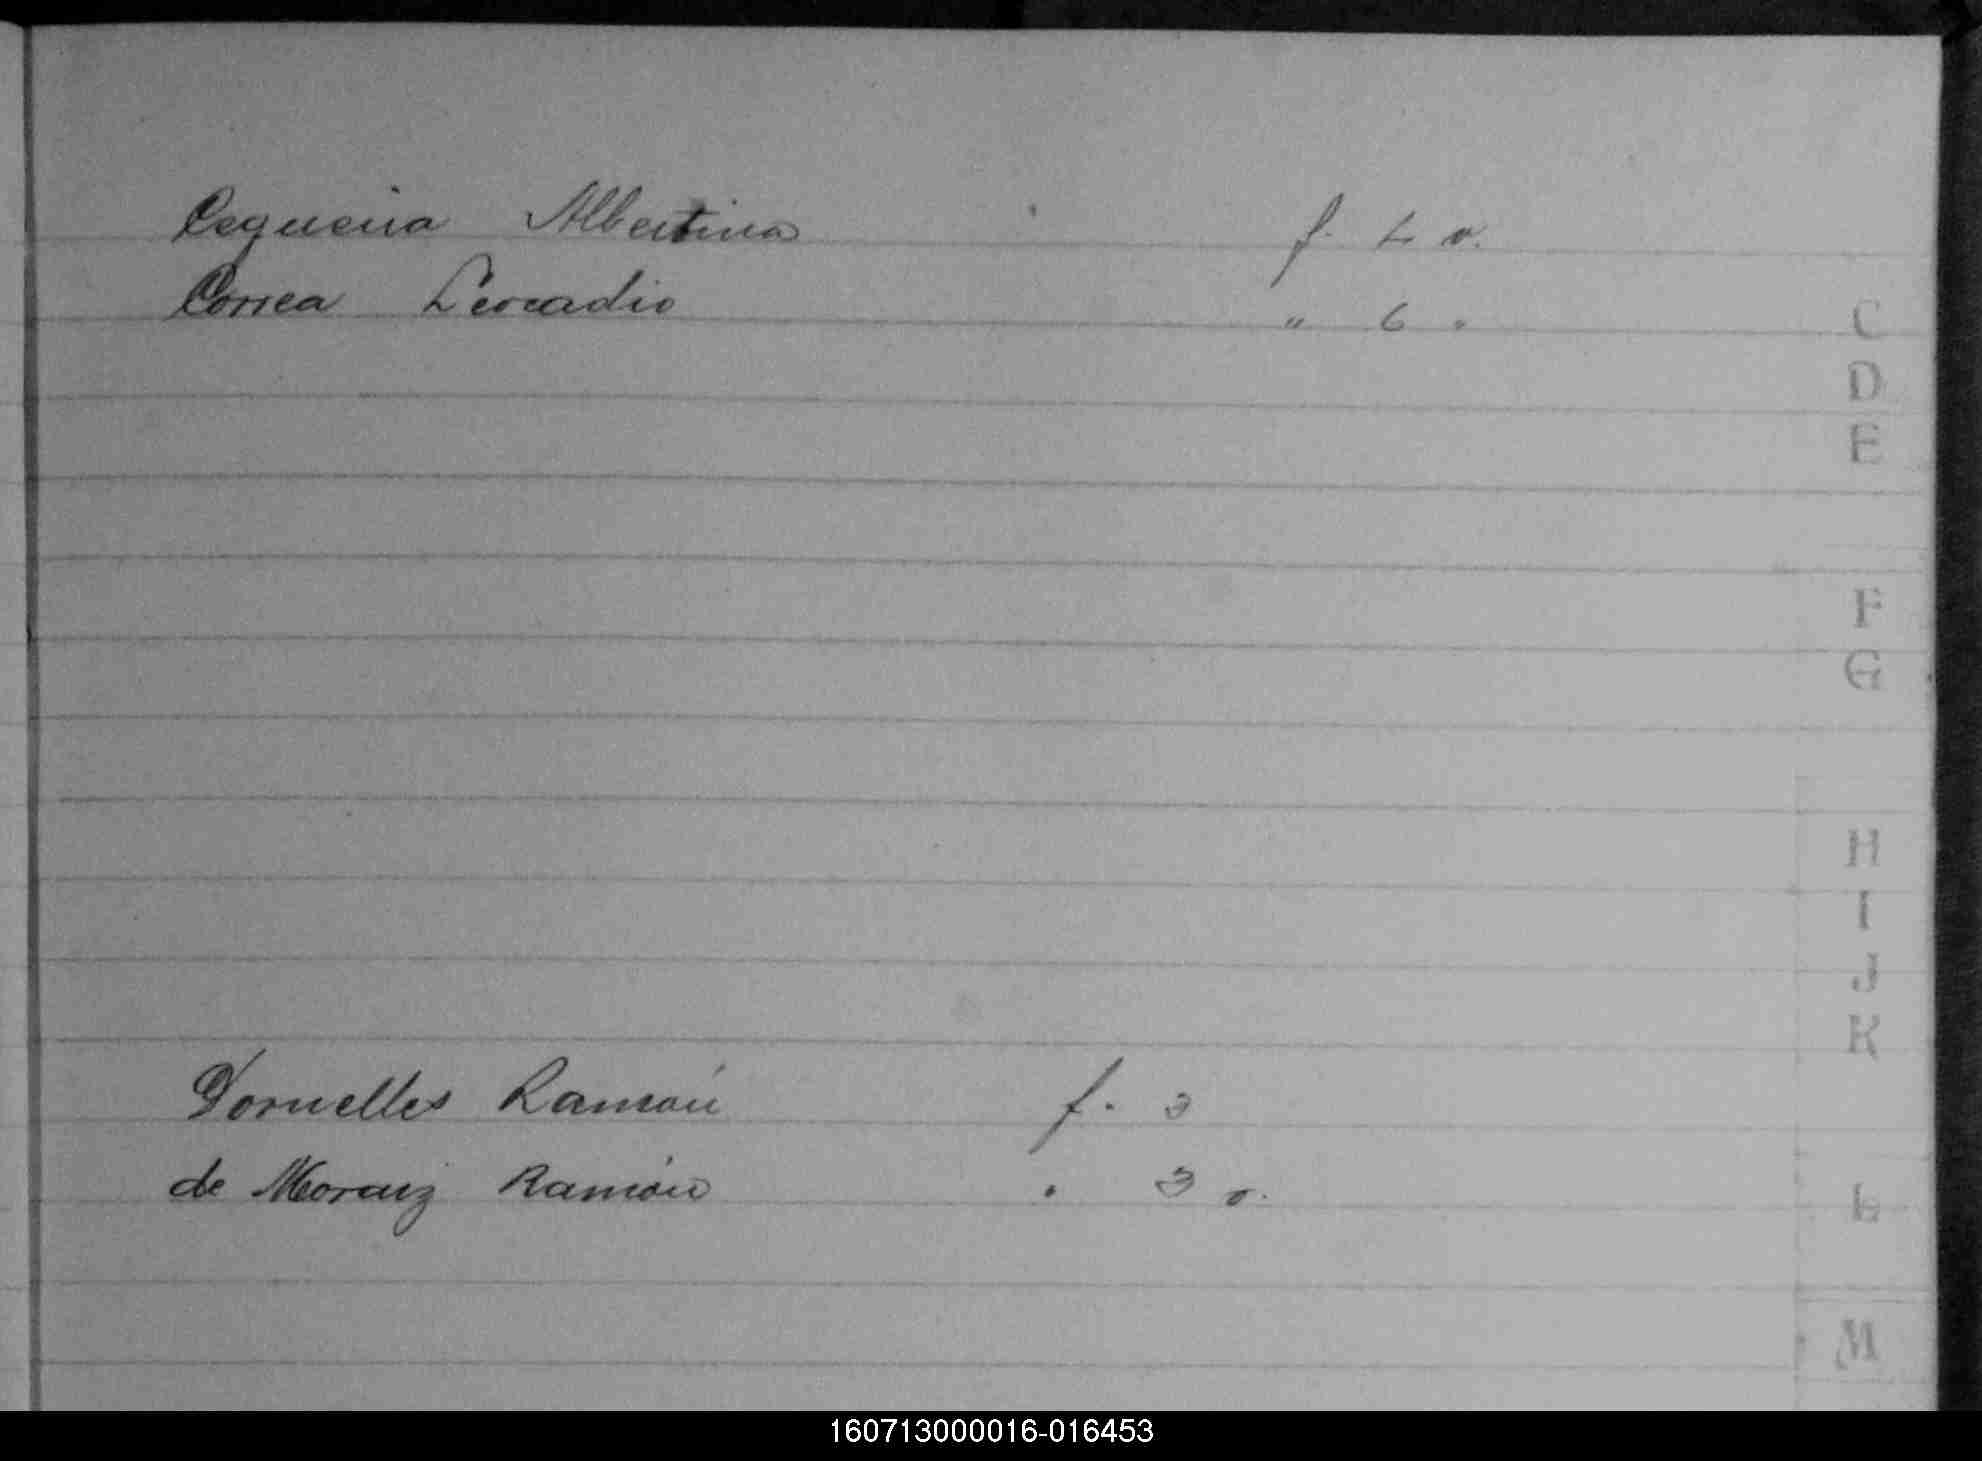 Cequeira Albertina f. 4 v.
Correa Leocadio " 6 "
C
D
E
F
G
H
I
J
K
Dornelles Ramón f. 3
de Moraiz Ramón " 3 v.
L
M
160713000016-016453